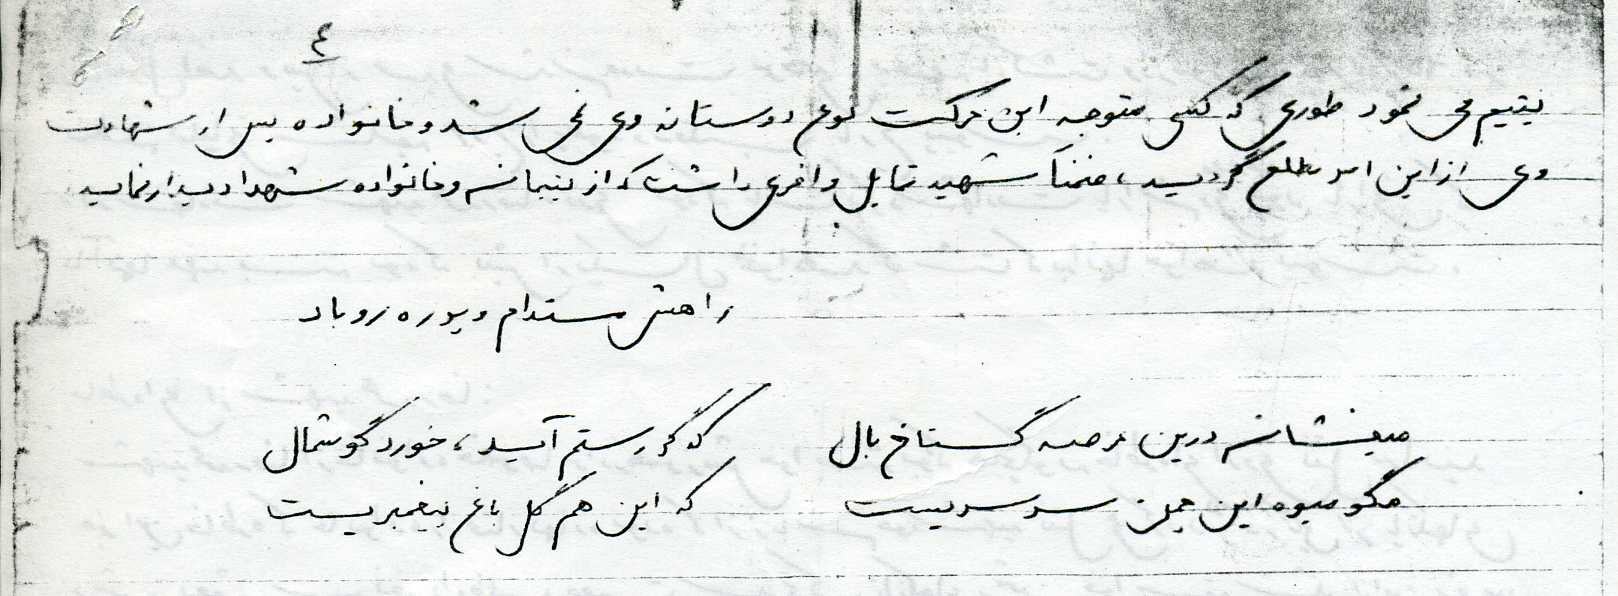 ٤
یتیم می نمود طوری که کسی متوجه این حرکت نوع دوستانه وی نمی شد و خانواده پس از شهادت
وی از این امر مطلع گردید، ضمناً شهید تمایل وافری داشت که از یتیمان و خانواده شهدا دیدار نماید
راهش مستدام و پوره رو باد
میفشان درین عرصه گستاخ بال که گر رستم آید، خورد گوشمال
مگو میوه این چمن سرسریست که این هم گل باغ پیغمبریست